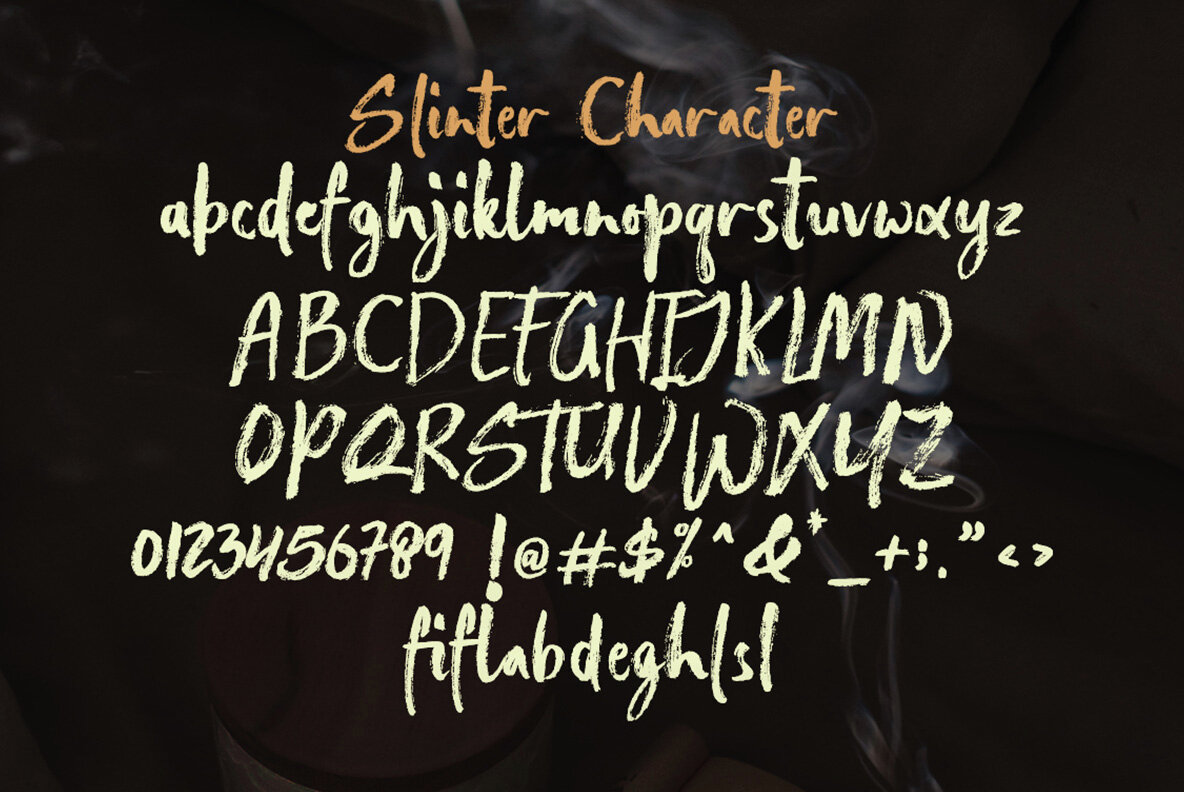 Slinter Character
abcdefghjiklmnopqrstuvwxyz
ABCDEFGHIJKLMN
OPQRSTUVWXYZ
0123456789 !@#$%^&*_+;.”<>
fiflabdeghlsl